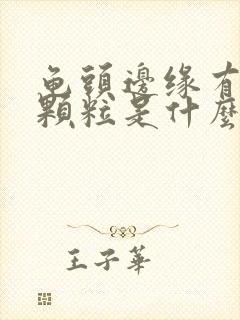 龟頭邊缘有
顆粒是什麼
王子華